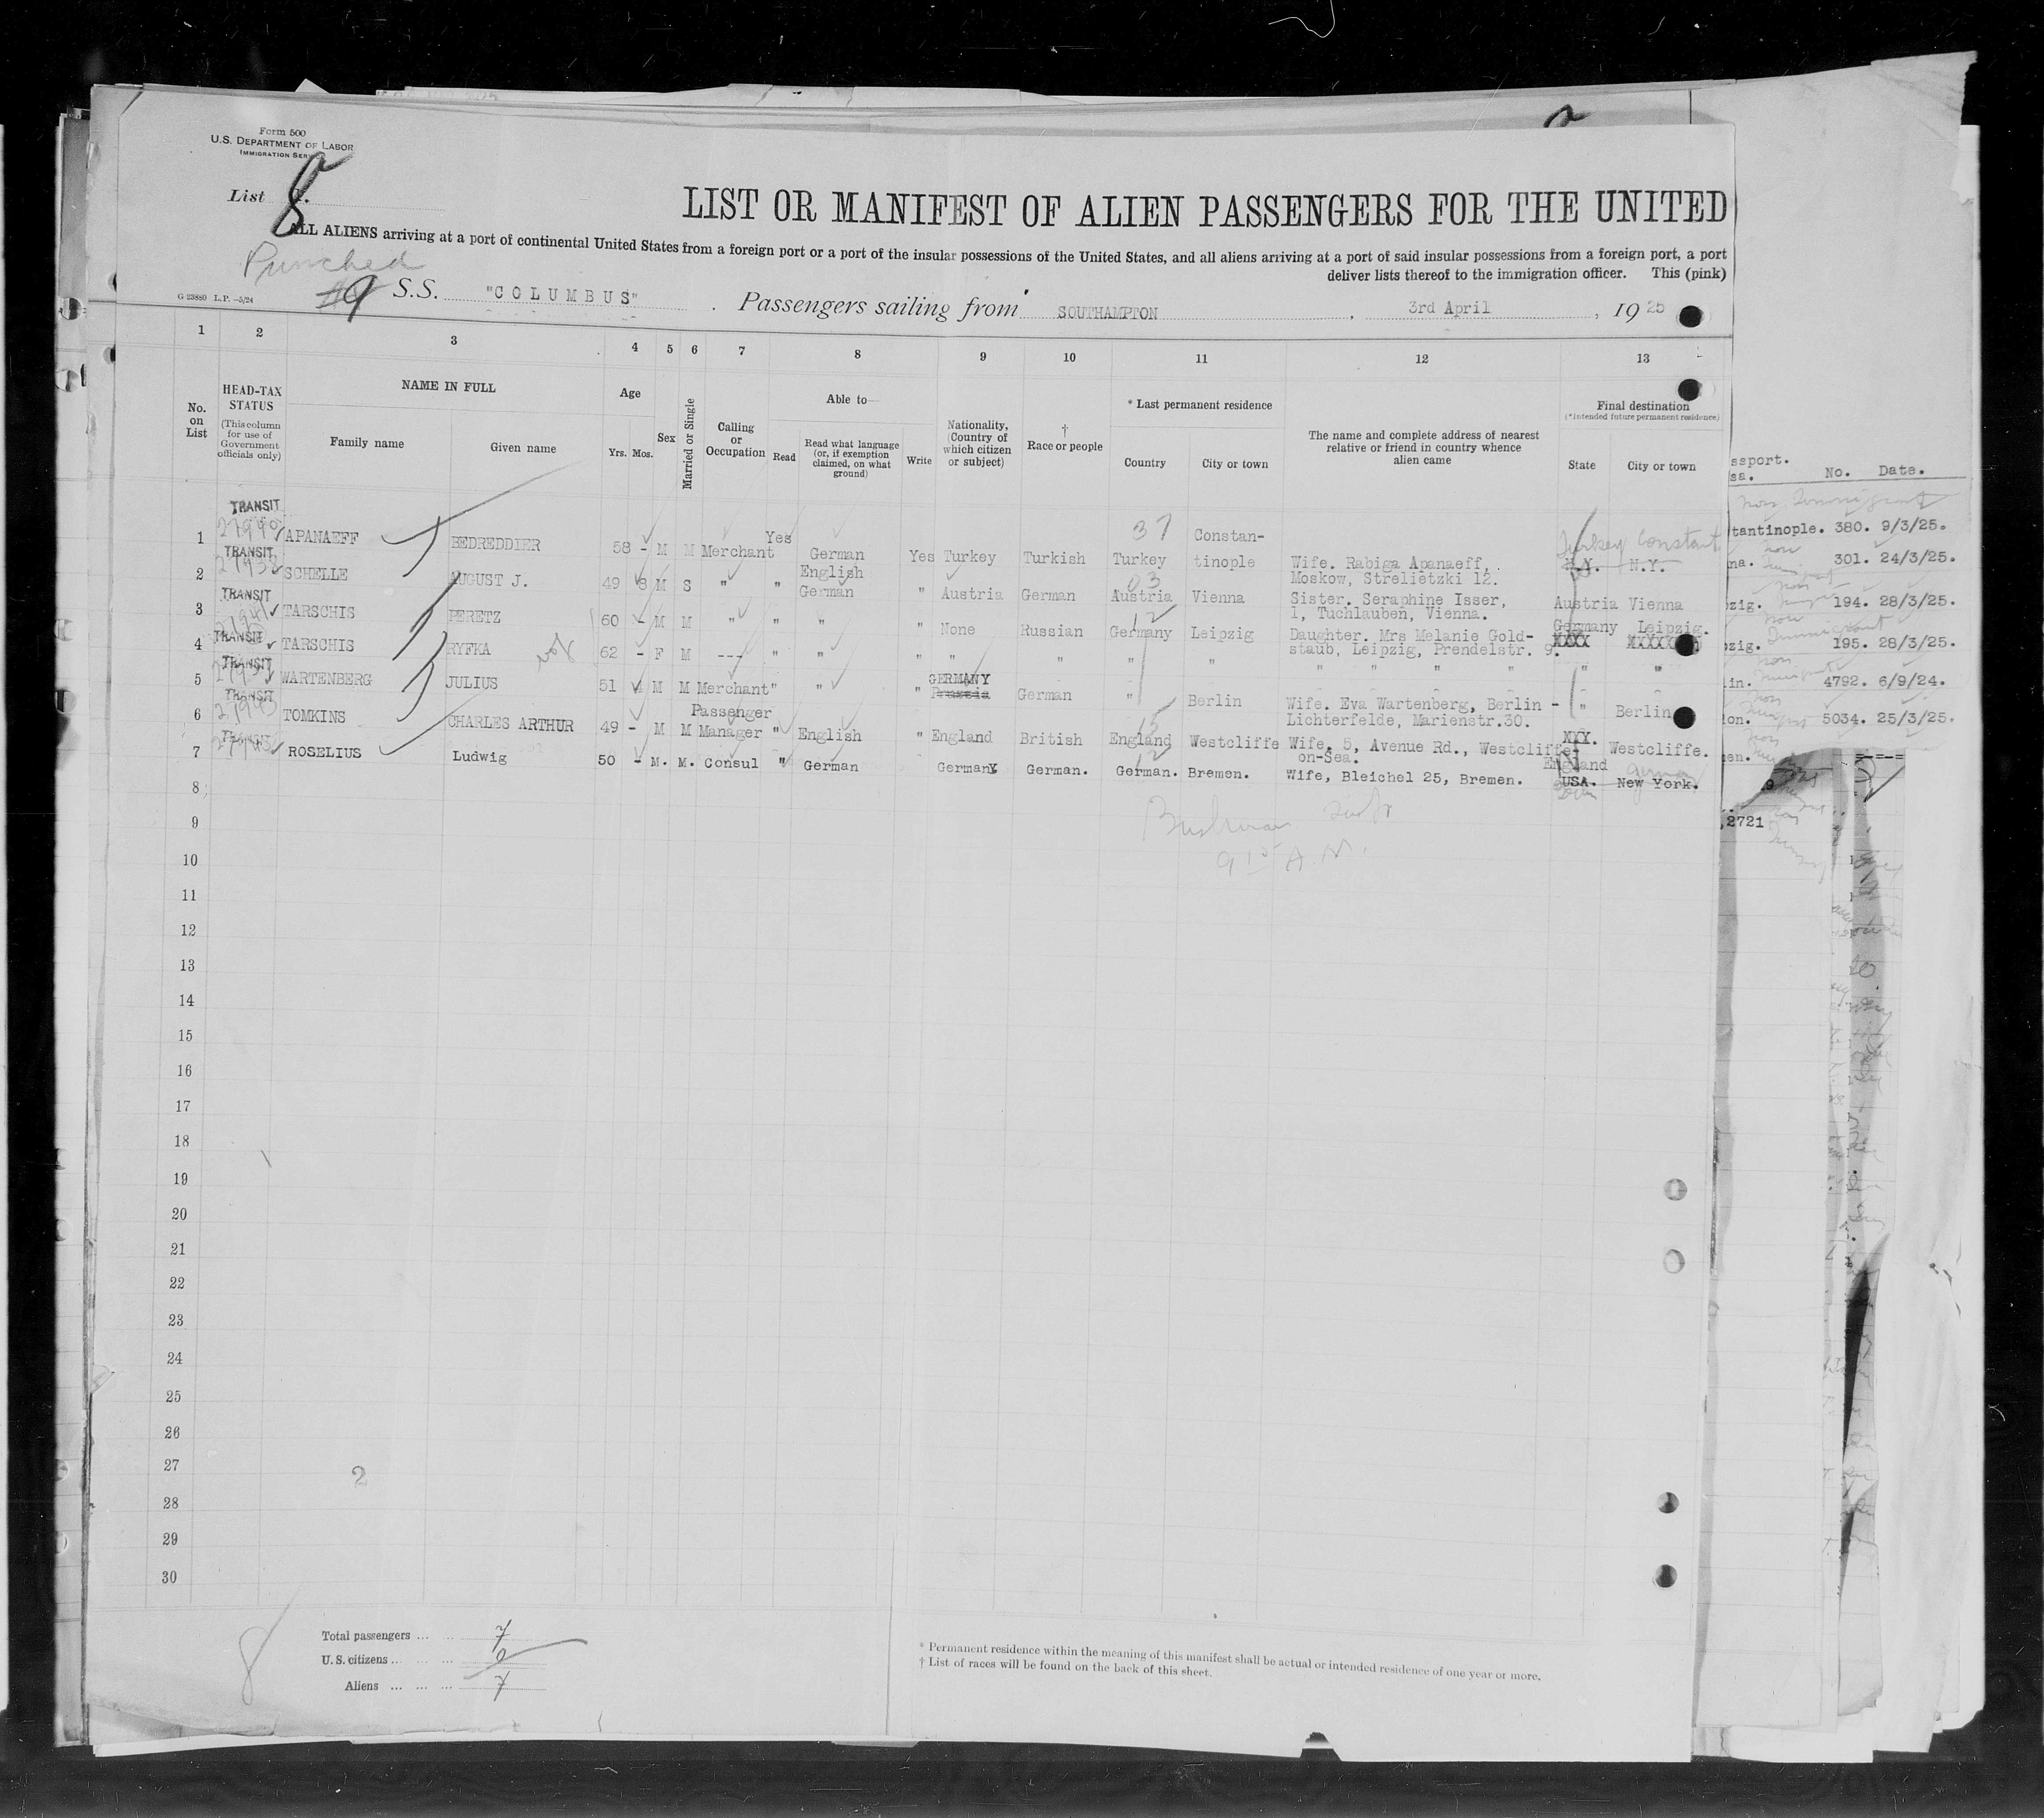 Form 500
U.S. DEPARTMENT OF LABOR
IMMIGRATION
List 8
LIST OR MANIFEST OF ALIEN PASSENGERS FOR THE UNITED
ALL ALIENS arriving at a port of continental United States from a foreign port or a port of the insular possessions of the United States, and all aliens arriving at a port of said insular possessions from a foreign port, a port
deliver lists thereof to the immigration officer. This (pink)
Punched
G 23880 L.P. —5/24
9 S.S. "COLUMBUS" Passengers sailing from SOUTHAMPTON, 3rd April, 1925
1 2 3 4 5 6 7 8 9 10 11 12 13
No. on List
HEAD-TAX STATUS
(This column for use of Government officials only)
NAME IN FULL
Family name Given name
Age
Yrs. Mos.
Sex
Married or Single
Calling or Occupation
Able to—
Read
Read what language (or, if exemption claimed, on what ground)
Write
Nationality, (Country of which citizen or subject)
† Race or people
* Last permanent residence
Country City or town
The name and complete address of nearest relative or friend in country whence alien came
Final destination
(*Intended future permanent residence)
State City or town
ssport.
sa. No. Date.
1 TRANSIT 27940 APANAEFF BEDREDDIER 58 - M M Merchant Yes German Yes Turkey Turkish Turkey 37 Constantinople Wife. Rabiga Apanaeff, Moskow, Strelietzki 12. Turkey Constant. N.Y. N.Y.
tantinople. 380. 9/3/25.
2 TRANSIT 27938 SCHELLE AUGUST J. 49 8 M S " " English German " Austria German Austria 03 Vienna Sister. Seraphine Isser, 1, Tuchlauben, Vienna. Austria Vienna
na. 301. 24/3/25.
3 TRANSIT TARSCHIS PERETZ 60 - M M " " " " None Russian Germany 12 Leipzig Daughter. Mrs Melanie Goldstaub, Leipzig, Prendelstr. 9. Germany Leipzig.
zig. 194. 28/3/25.
4 TRANSIT TARSCHIS RYFKA 62 - F M --- " " " " " " " " " " " " "
zig. 195. 28/3/25.
5 TRANSIT WARTENBERG JULIUS 51 4 M M Merchant " " " GERMANY Prussia German " Berlin Wife. Eva Wartenberg, Berlin - Lichterfelde, Marienstr.30. " Berlin
lin. 4792. 6/9/24.
6 TRANSIT 27943 TOMKINS CHARLES ARTHUR 49 - M M Passenger Manager " English " England British England 15 Westcliffe Wife. 5, Avenue Rd., Westcliffe-on-Sea. England Westcliffe.
on. 5034. 25/3/25.
7 TRANSIT ROSELIUS Ludwig 50 - M. M. Consul " German Germany German. German. 12 Bremen. Wife, Bleichel 25, Bremen. USA. New York. Germany
en.
2721
8
9
9 15 A.M.
10
11
12
13
14
15
16
17
18
19
20
21
22
23
24
25
26
27 2
28
29
30
8
Total passengers ... 7
U.S. citizens ... 0
Aliens ... 7
* Permanent residence within the meaning of this manifest shall be actual or intended residence of one year or more.
† List of races will be found on the back of this sheet.